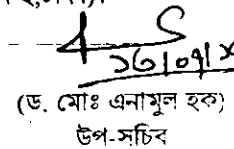 ১৬|০৭|
(ড. মোঃ এনামুল হক)
উপ-সচিব